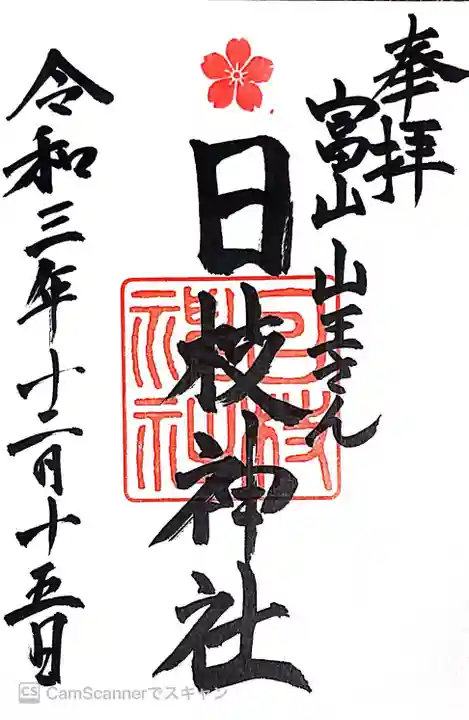 奉拝
富山 山王さん
日枝神社
日枝神社
令和三年十二月十五日
CS CamScannerでスキャン